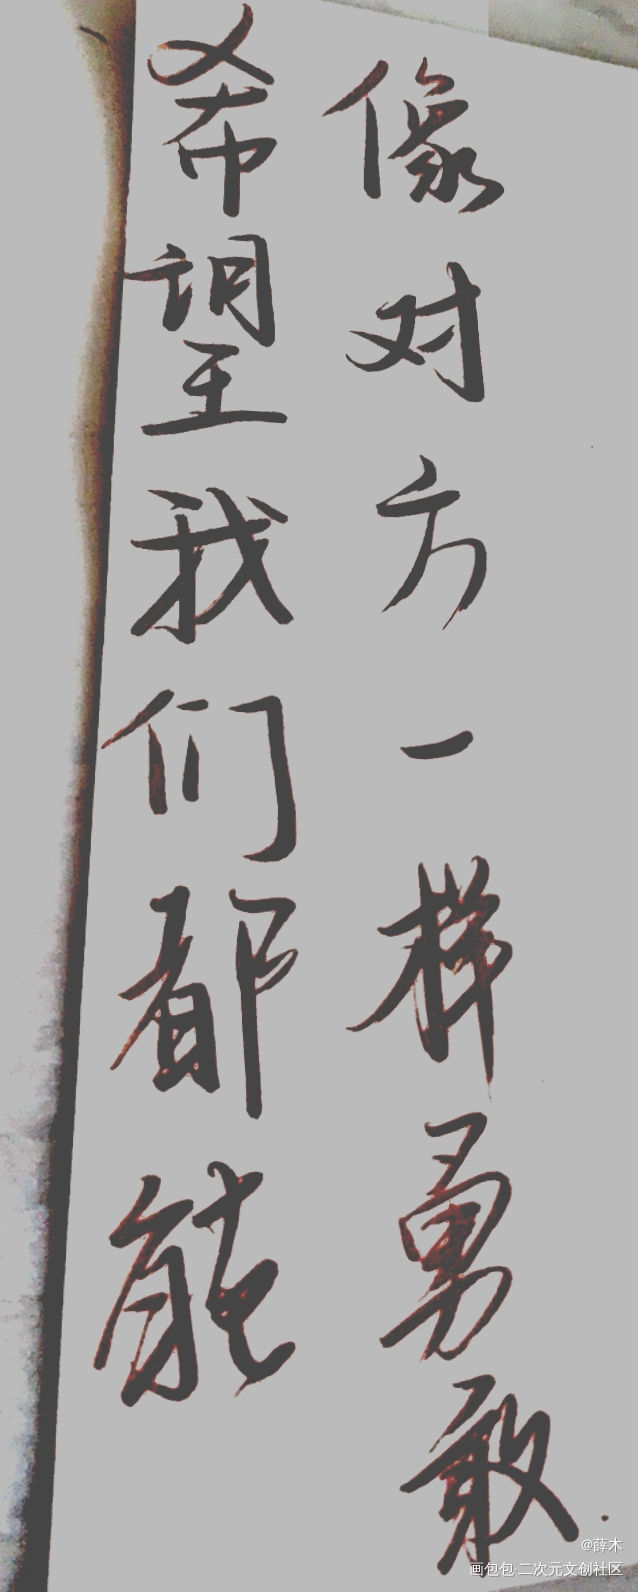 希望我们都能
像对方一样勇敢.
@薛木
画包包·二次元文创社区